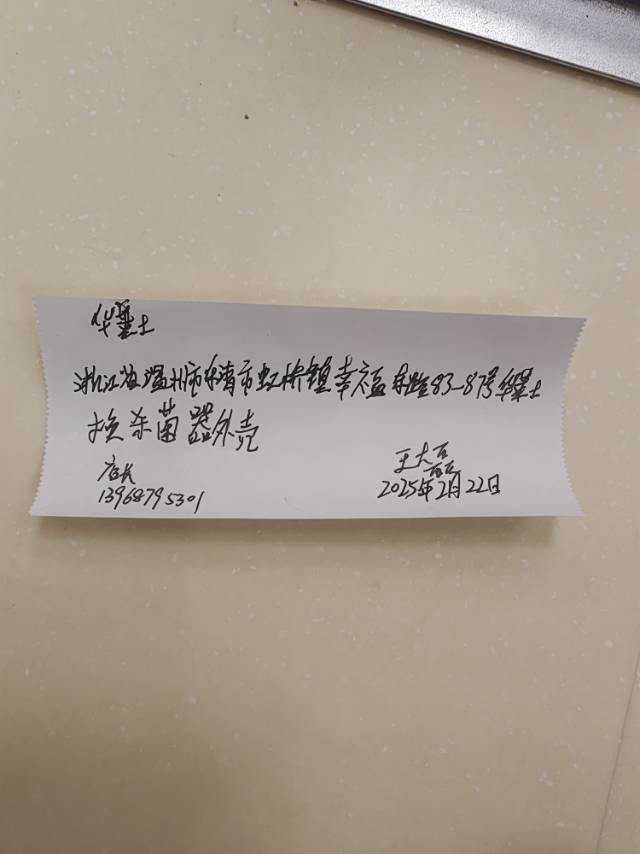 华莱士
浙江省温州市乐清市虹桥镇幸福东路83-87号华莱士
换杀菌器外壳
店长
13968795301
王大磊
2025年2月22日